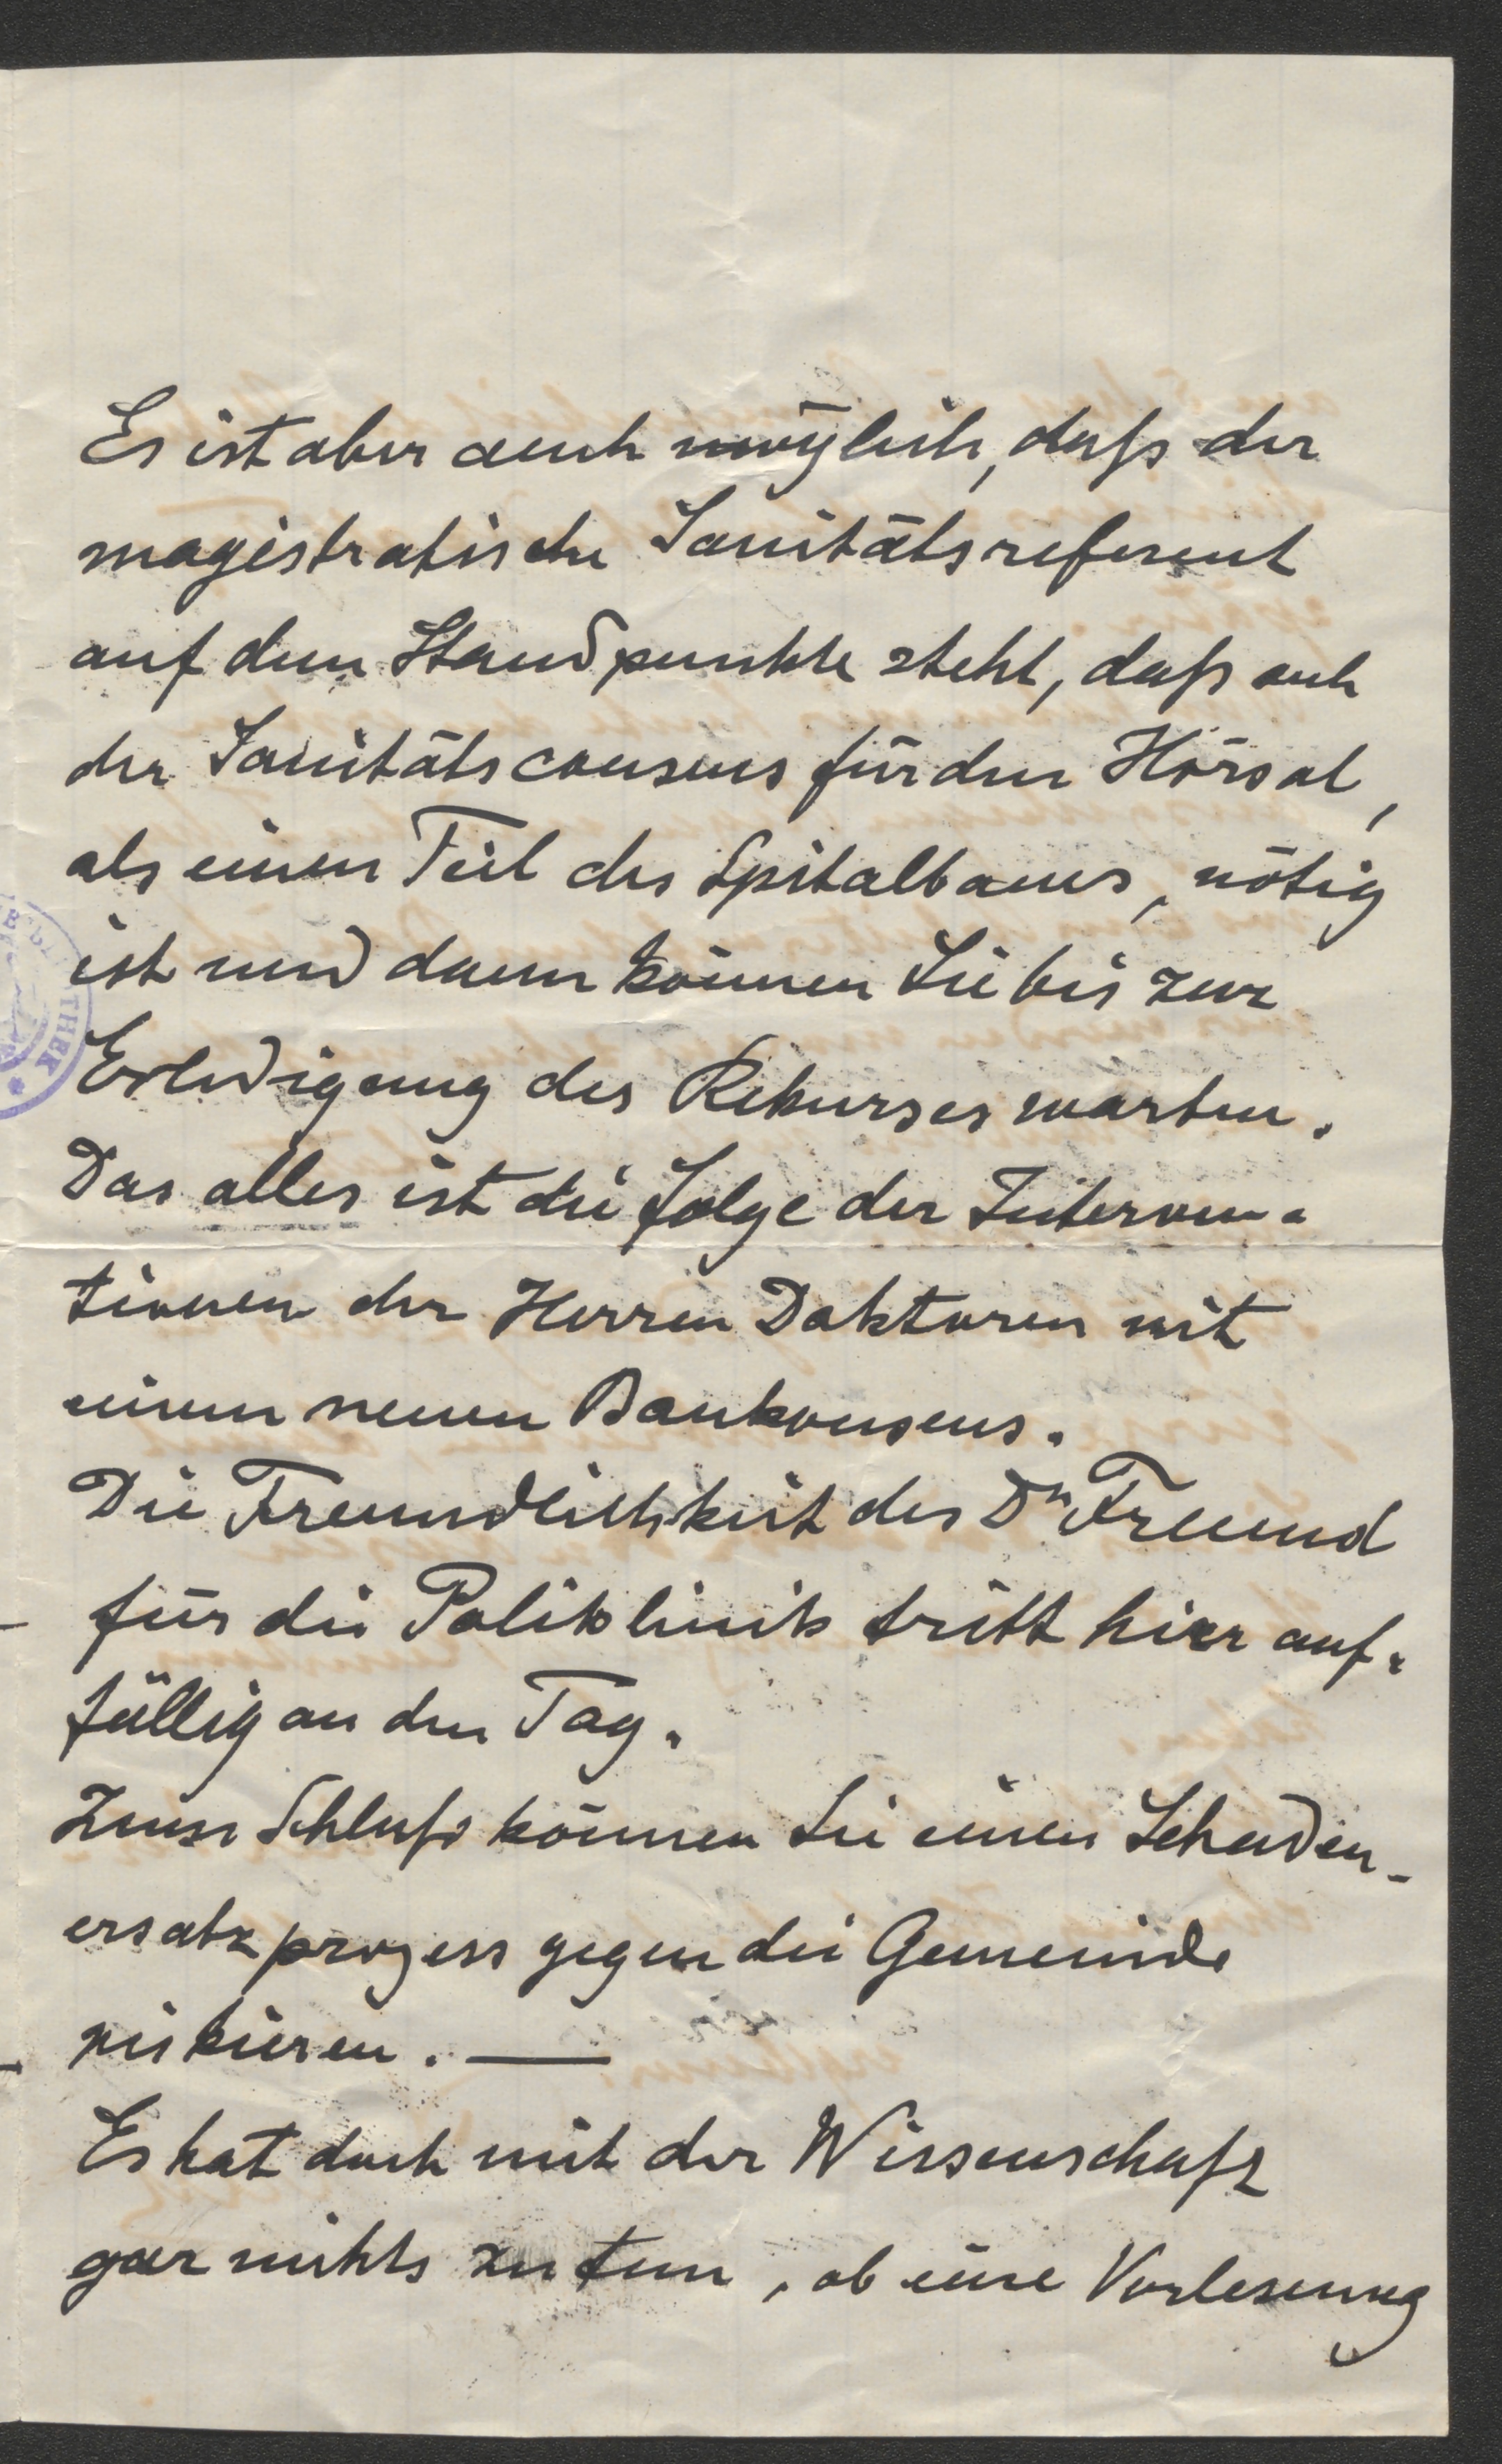 Es ist aber auch möglich, daß der
magistratische Sanitätsreferent
auf dem Standpunkte steht, daß auch
der Sanitätsconsens für den Hörsal,
als einen Teil des Spitalbaues, nötig
ist und dann können Sie bis zur
Erledigung des Rekurses warten.
Das alles ist die Folge der Interven-
tionen der Herren Doktoren mit
einem neuen Baukonsens.
Die Freundlichkeit des Dr Freund
für die Poliklinik tritt hier auf-
fällig an den Tag.
Zum Schluß können Sie einen Schaden-
ersatzprozess gegen die Gemeinde
riskieren. —
Es hat doch mit der Wissenschaft
gar nichts zu tun, ob eine Vorlesung
THEK